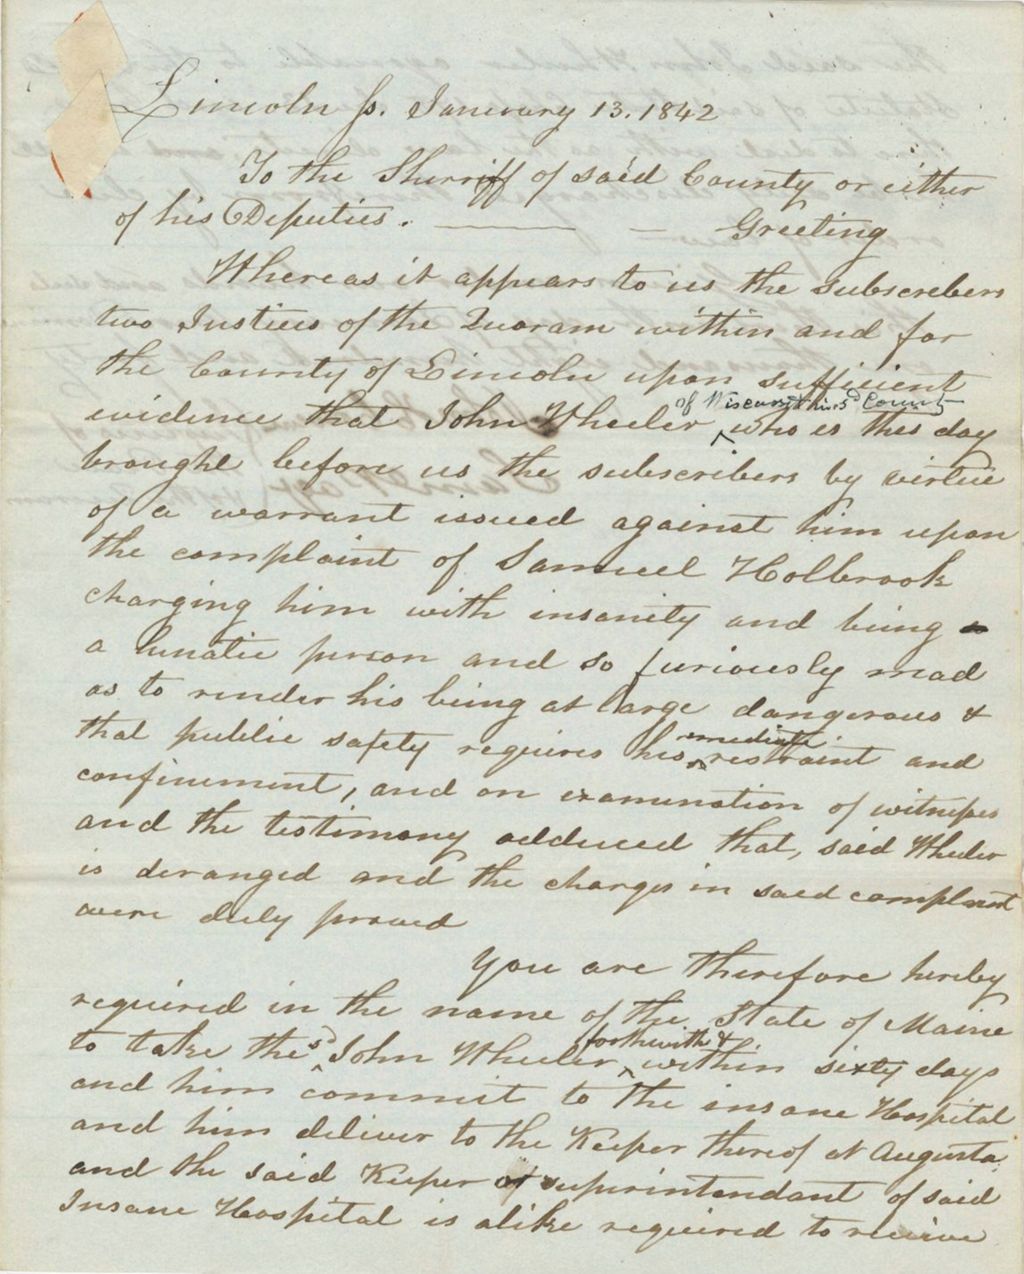 Lincoln ss. January 13. 1842
To the Sherriff of said County or either
of his Deputies. Greeting
Whereas it appears to us the Subscribers
two Justices of the Quoram within and for
the County of Lincoln upon sufficient
of Wiscasset in sd County
evidence that John Wheeler ^ who is this day
brought before us the subscribers by virtue
of a warrant issued against him upon
the complaint of Samuel Holbrook
charging him with insanity and being
a lunatic person and so furiously mad
as to render his being at large dangerous &
emediate
that public safety requires his ^ restraint and
confinement, and on examination of witnesses
and the testimony adduced that, said Wheeler
is deranged and the charges in said complaint
were duly proved
You are therefore hereby
required in the name of the State of Maine
sd forthwith &
to take the ^ John Wheeler ^ within sixty days
and him commit to the insane Hospital
and him deliver to the Keeper thereof at Augusta
and the said Keeper or superintendant of said
Insane Hospital is alike required to receive